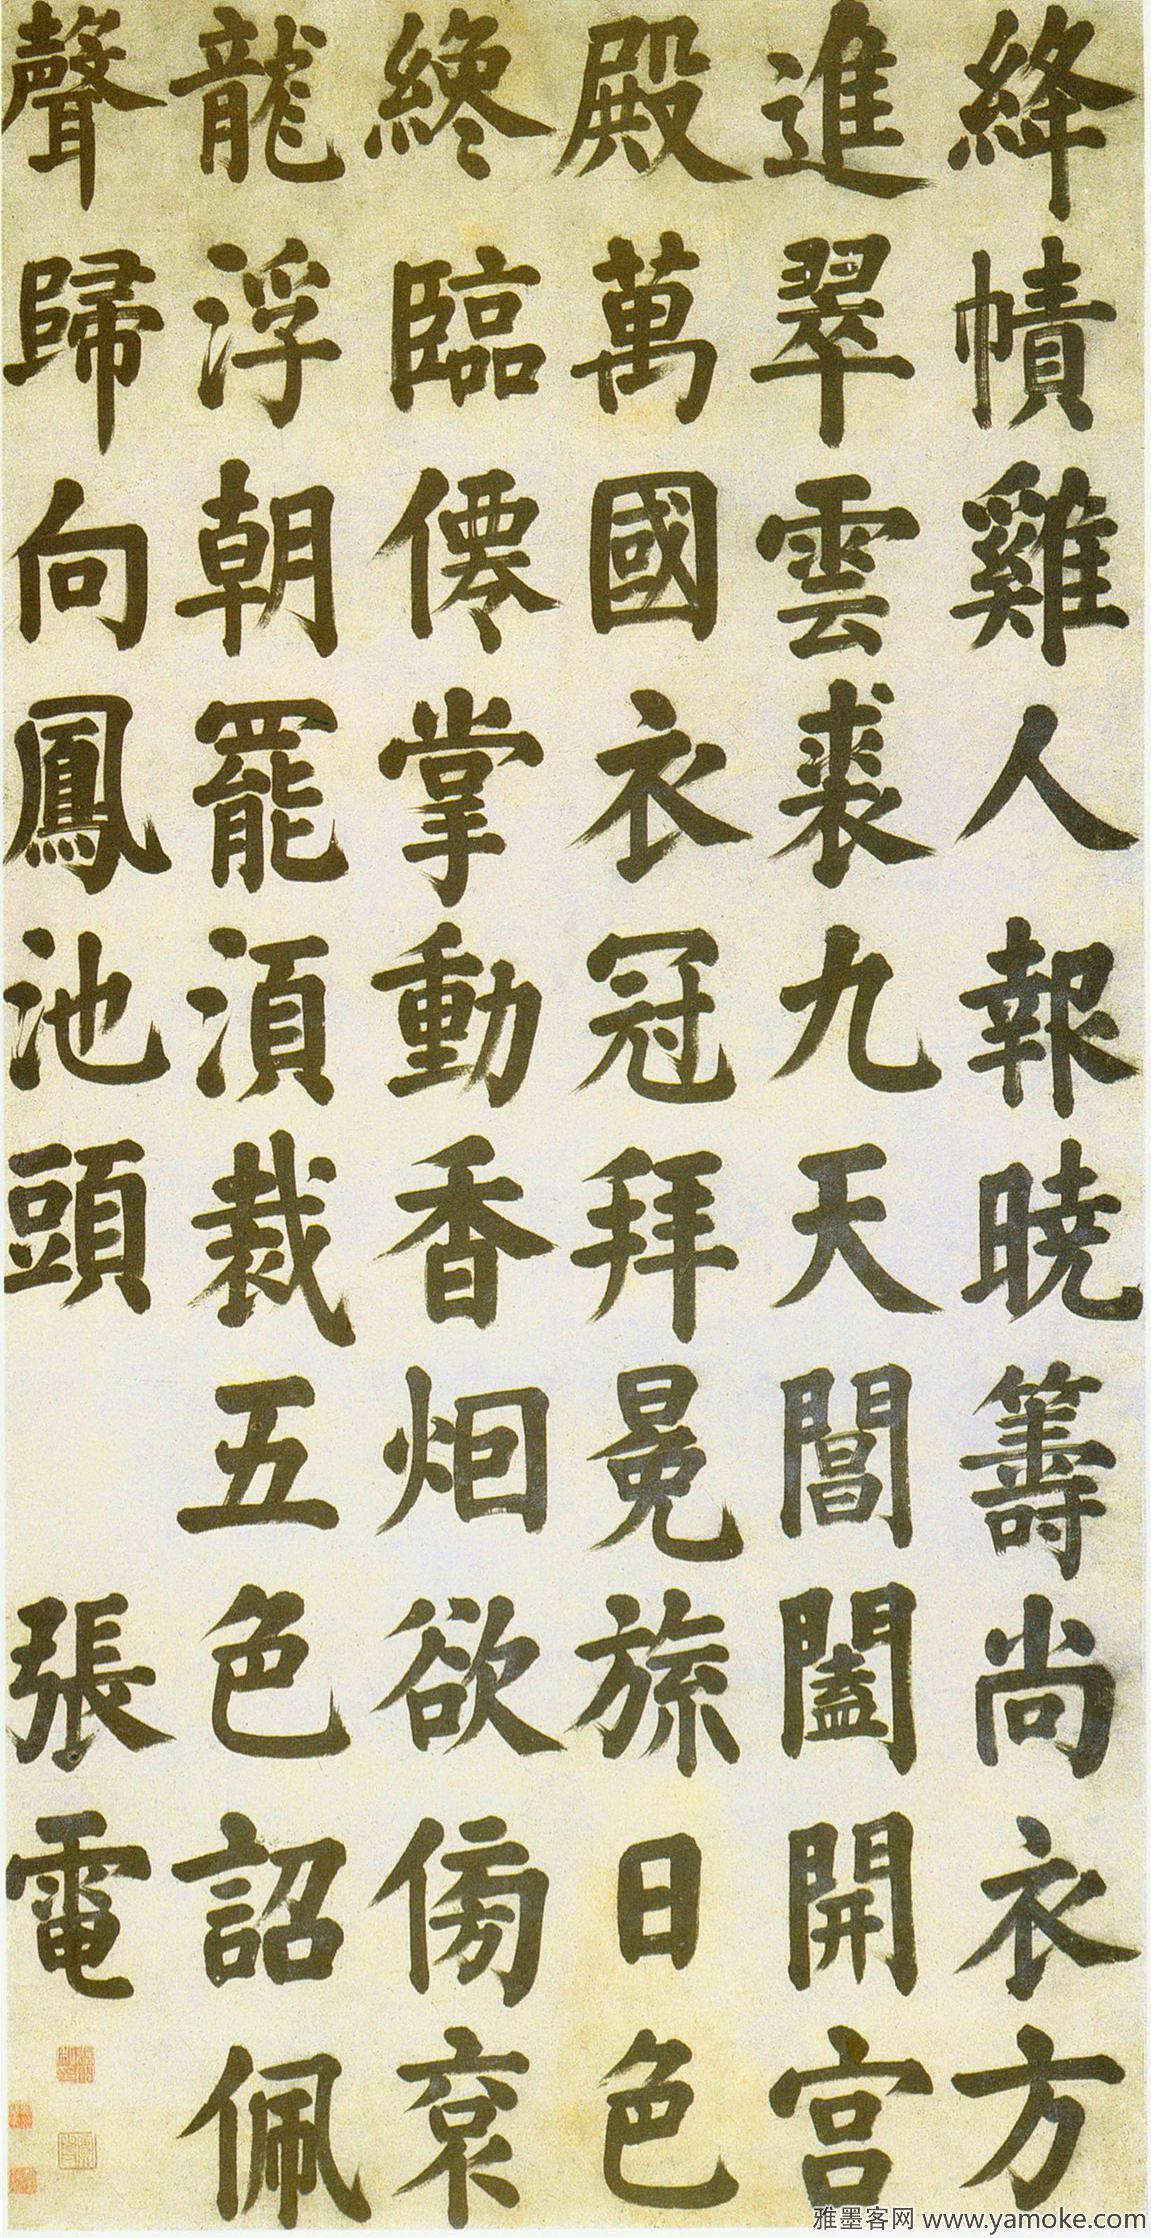 絳幘雞人報曉籌尚衣方
進翠雲裘九天閶闔開宫
殿萬國衣冠拜冕旒日色
纔臨僊掌動香烟欲傍衮
龍浮朝罷湏裁五色詔佩
聲歸向鳳池頭
張電
雅墨客网 www.yamoke.com